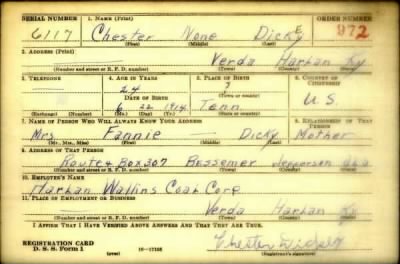 SERIAL NUMBER 1. NAME (Print) ORDER NUMBER
6117 Chester None Dickey 972
(First) (Middle) (Last)
2. ADDRESS (Print)
Verda Harlan Ky
(Number and street or R. F. D. number) (Town) (County) (State)
3. TELEPHONE 4. AGE IN YEARS 5. PLACE OF BIRTH 6. COUNTRY OF CITIZENSHIP
24 ?
DATE OF BIRTH (Town or county)
6 22 1914 Tenn U.S.
(Exchange) (Number) (Mo.) (Day) (Yr.) (State or country)
7. NAME OF PERSON WHO WILL ALWAYS KNOW YOUR ADDRESS 8. RELATIONSHIP OF THAT PERSON
Mrs. Fannie — Dicky Mother
(Mr., Mrs., Miss) (First) (Middle) (Last)
9. ADDRESS OF THAT PERSON
Route 4 Box 307 Bessemer Jefferson Ala
(Number and street or R. F. D. number) (Town) (County) (State)
10. EMPLOYER'S NAME
Harlan Wallins Coal Corp
11. PLACE OF EMPLOYMENT OR BUSINESS
Verda Harlan Ky
(Number and street or R. F. D. number) (Town) (County) (State)
I AFFIRM THAT I HAVE VERIFIED ABOVE ANSWERS AND THAT THEY ARE TRUE.
REGISTRATION CARD
D. S. S. Form 1 (over) 16—17105 Chester Dickey
(Registrant's signature)